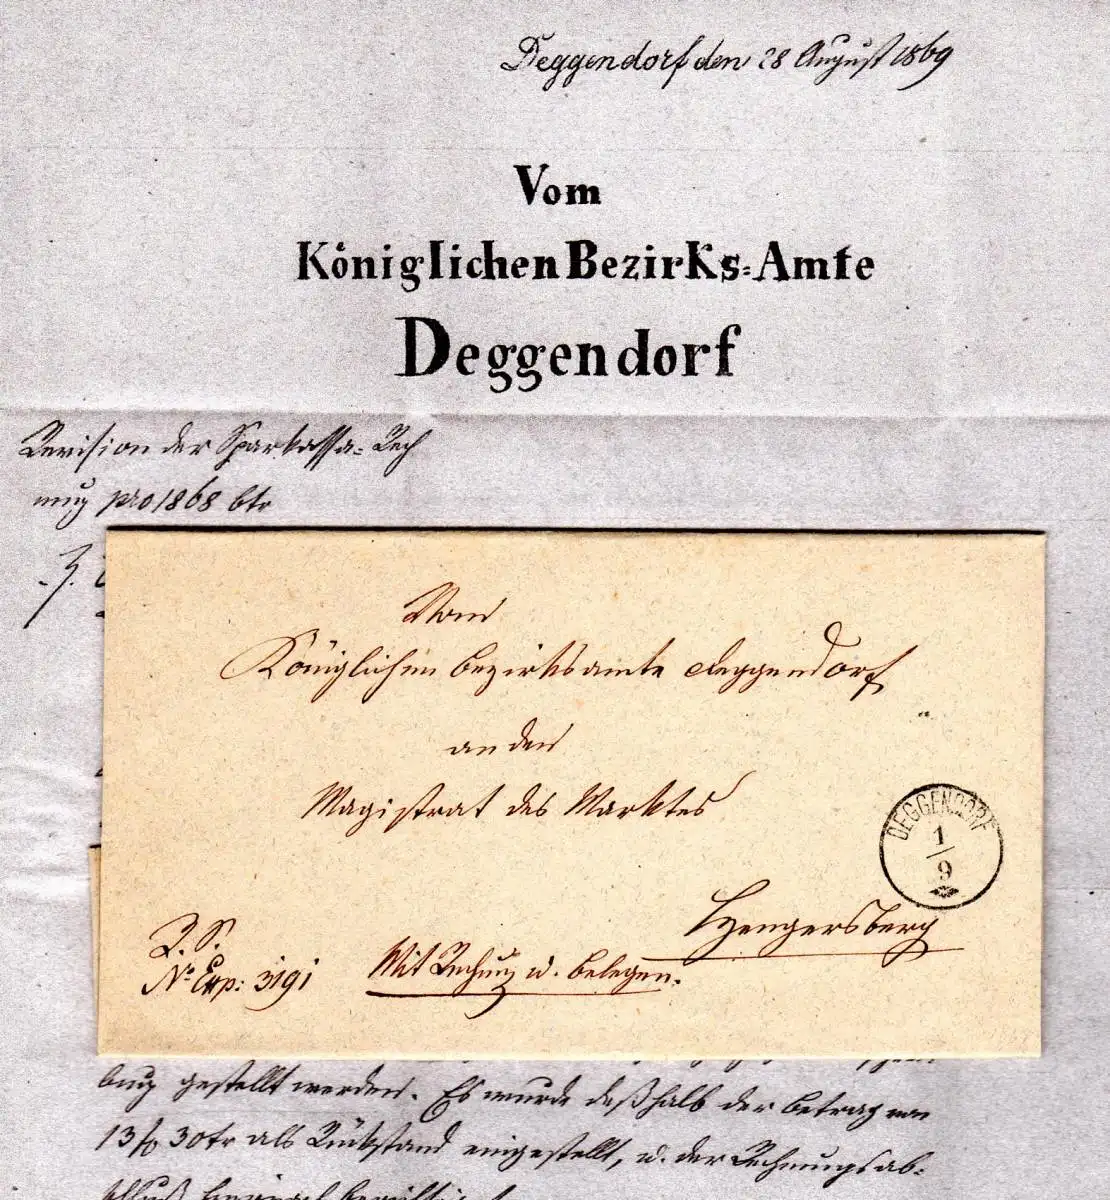 Deggendorf den 28 August 1869
Vom
Königlichen Bezirks=Amte
Deggendorf
Revision der Sparkassa=Rech
nung pro 1868 btr
Vom
Königlichen Bezirksamte Deggendorf
an den
Magistrat des Marktes
DEGGENDORF
1
9
Hengersberg
R. S.
No Exp: 3191
Mit Rechnung u. Belegen.
bung gestellt werden. Es wurde deßhalb der Betrag von
13 f 30 kr als Rückstand eingestellt, u. der Rechnungsab=
schluß